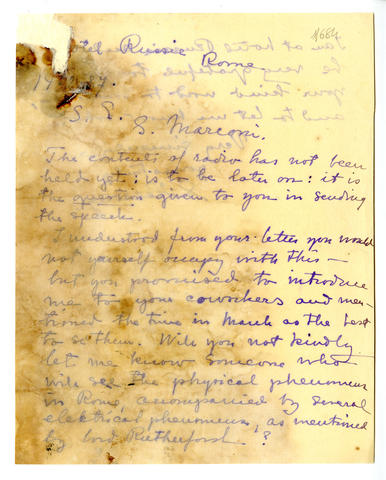 Russie
Rome
S. E.
G. Marconi,
The contents of radio has not been
held yet: is to be later on: it is
the question given to you in sending
the speech.
I understood from your letter you would
not yourself occupy with this —
but you promised to introduce
me to your coworkers and men-
tioned the time in March as the best
to see them. Will you not kindly
let me know someone who
will see the physical phenomena
in Rome, acompanied by several
electrical phenomena, as mentioned
by lord Rutherforst ?